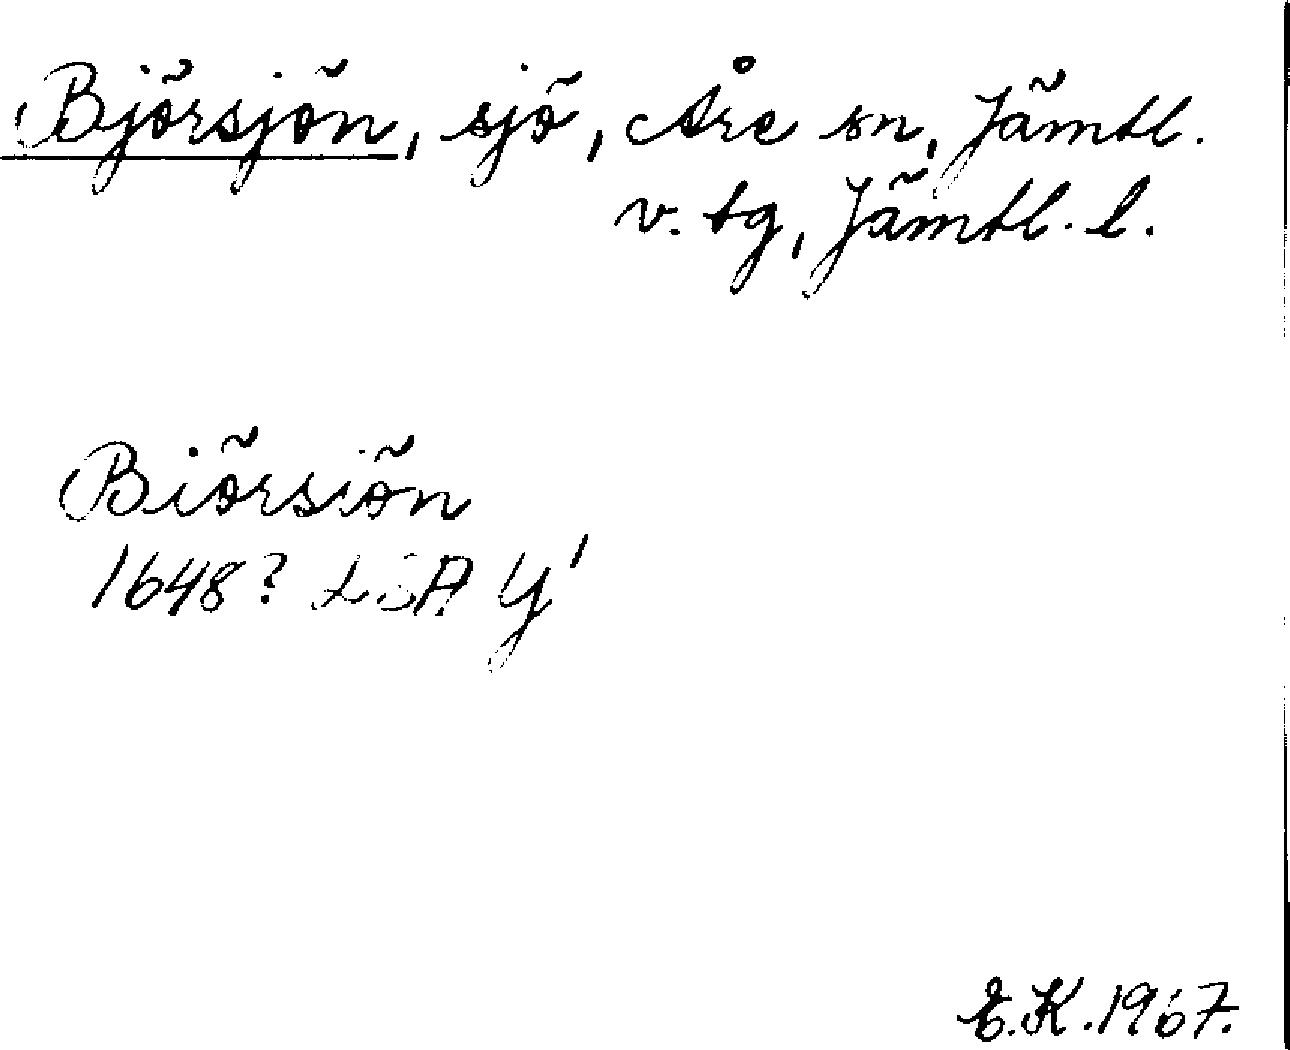 Björsjön, sjö, Åre sn, Jämtl.
v. tg, Jämtl. l.
Biörsiön
1648? LSA Y'
E.K. 1967.